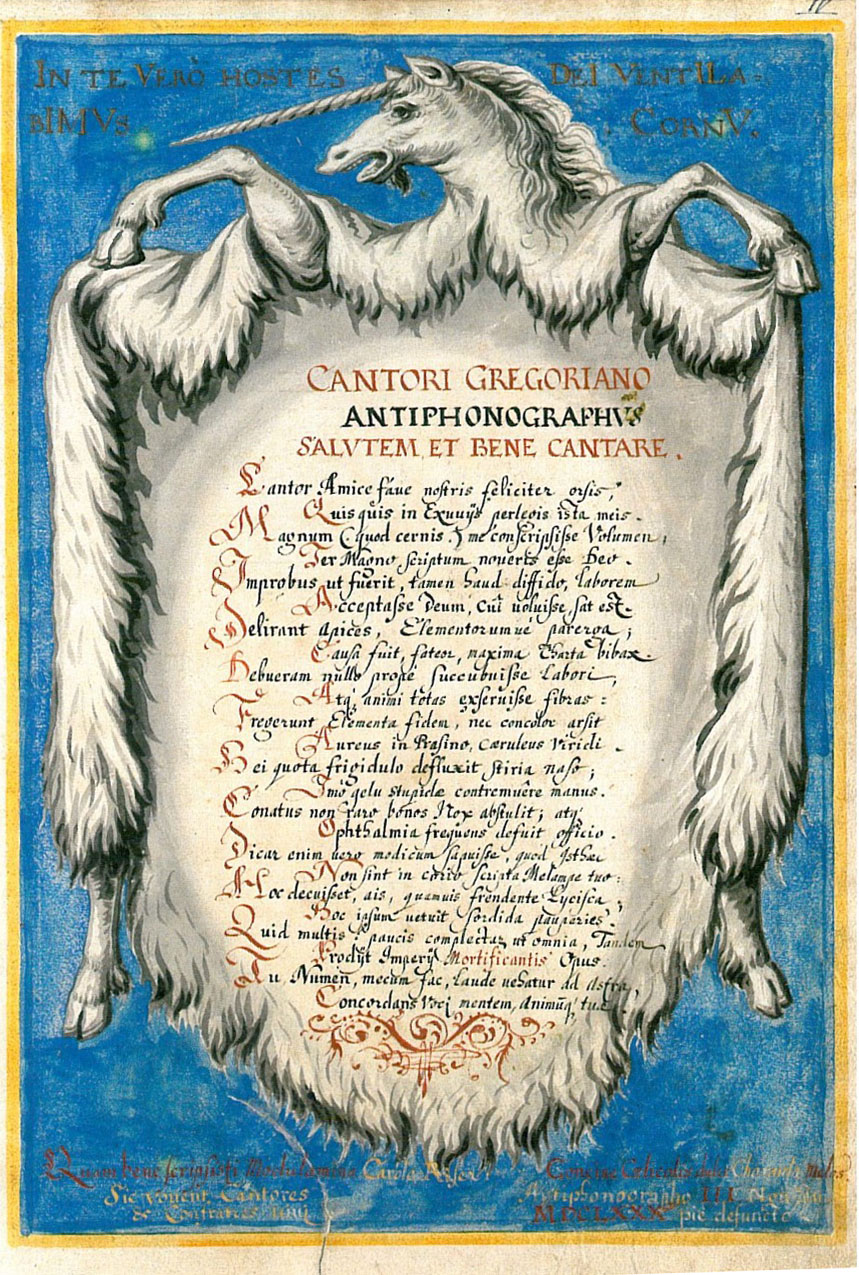 IN TE VERÒ HOSTES DEI VENTILA=
BIMVS CORNV.
CANTORI GREGORIANO
ANTIPHONOGRAPHVS
SALVTEM ET BENE CANTARE.
Cantor Amice fave nostris feliciter orsis,
Quisquis in Exuvijs perlegis ista meis.
Magnum (quod cernis,) me conscripsisse Volumen,
Ter Magno scriptum noveris esse Deo.
Improbus ut fuerit, tamen haud diffido, laborem
Acceptasse Deum, cui voluisse, sat est.
Delirant apices, Elementorumué parerga;
Causa fuit, fateor, maxima Charta bibax.
Debueram nullo prope succubuisse labori,
Atq animi totas exseruisse fibras:
Fregerunt Elementa fidem, nec concolor arsit
Aureus in Prasino, cæruleus Viridi.
Hei quota frigidulo defluxit stiria naso;
Imò gelu stupidæ contremuêre manus.
Conatus non raro bonos Nox abstulit; atq
Ophthalmia frequens defuit officio.
Dicar enim vero modicum sapuisse, quod Isthæc
Non sint in corio scripta Melampe tuo:
Hoc decuisset, ais, quamuis frendente Lycisca;
Hoc ipsum vetuit sordida pauperies.
Quid multis? paucis complectar ut omnia, Tandem
Prodijt Imperij Mortificantis Opus.
Tu Numen, mecum fac, laude vehatur ad astra,
Concordans voci mentem, animũq tuæ.
Quam bene scripsisti Modulamina
Sic vovent Cantores
Antiphonographo III Non
MDCLXXX pie defuncto